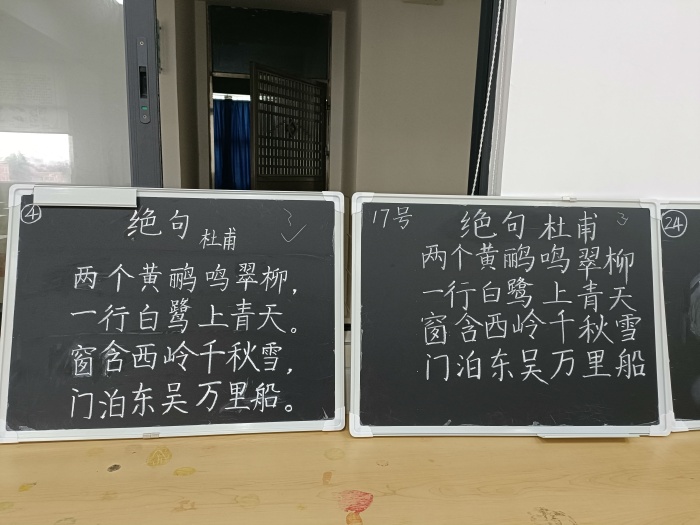 ④
绝句
杜甫
两个黄鹂鸣翠柳，
一行白鹭上青天。
窗含西岭千秋雪，
门泊东吴万里船。
17号
绝句 杜甫
两个黄鹂鸣翠柳
一行白鹭上青天
窗含西岭千秋雪
门泊东吴万里船
㉔